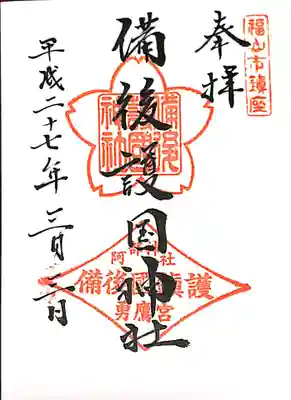 福山市鎮座
奉拝
備後護国神社
備後護國神社
阿部神社
備後國鎮護
勇鷹宮
平成二十七年三月三日